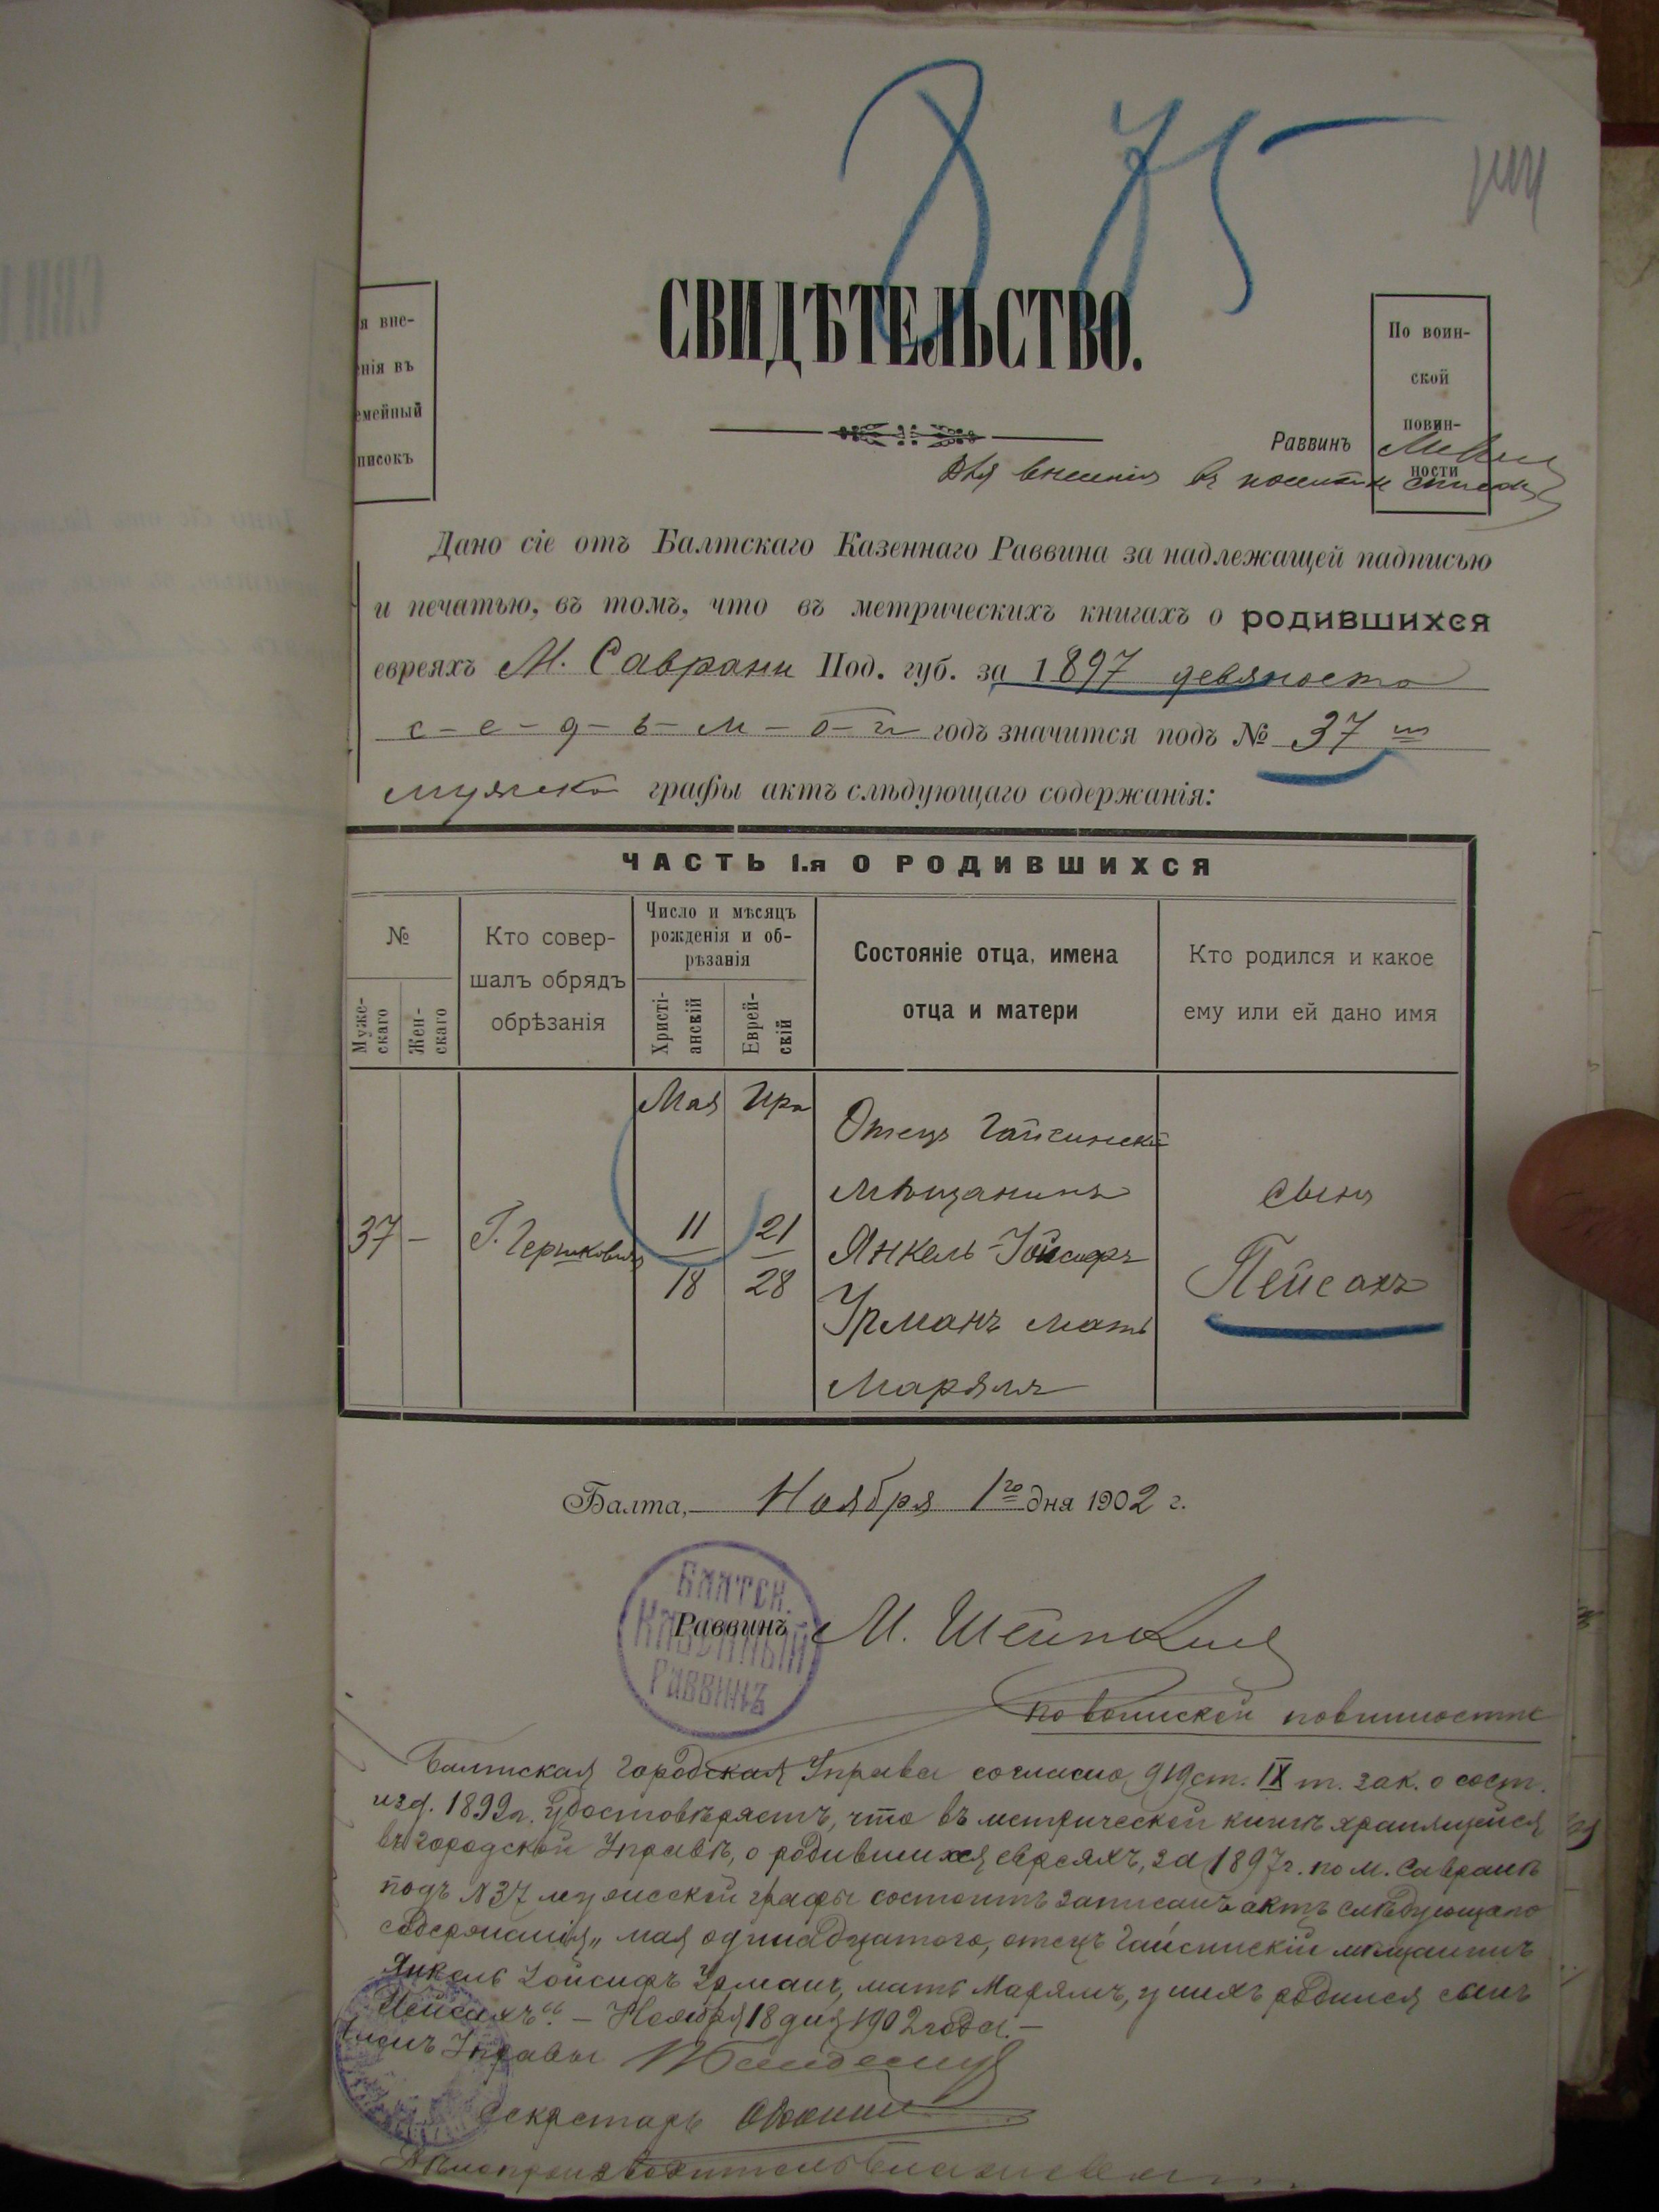 75
СВИДѢТЕЛЬСТВО.
я вне-
нія въ
емейный
писокъ
По воин-
ской
повин-
ности
Раввинъ
Для внесенія въ списки
Дано сіе отъ Балтскаго Казеннаго Раввина за надлежащей надписью
и печатью, въ томъ, что въ метрическихъ книгахъ о родившихся
евреяхъ М. Саврани Под. губ. за 1897 девяносто
с-е-д-ь-м-о-й годъ значится подъ № 37 м
мужской графы актъ слѣдующаго содержанія:
ЧАСТЬ I.я О РОДИВШИХСЯ
№
Муже-
скаго
Жен-
скаго
Кто совер-
шалъ обрядъ
обрѣзанія
Число и мѣсяцъ
рожденія и об-
рѣзанія
Христі-
анскій
Еврей-
скій
Состояніе отца, имена
отца и матери
Кто родился и какое
ему или ей дано имя
37
–
Г. Гершковичъ
Мая
11
18
Ира
21
28
Отецъ Гайсинскій
мѣщанинъ
Янкель-Іойсифъ
Урманъ мать
Марямъ
сынъ
Пейсахъ
Балта, Ноября 1го дня 1902 г.
БАЛТСК.
КАЗЕННЫЙ
РАВВИНЪ
Раввинъ М.
по воинской повинности
Балтская Городская Управа согласно 919 ст. IX т. зак. о сост.
изд. 1899 г. удостовѣряетъ, что въ метрической книгѣ хранящейся
въ городской Управѣ, о родившихся евреяхъ, за 1897 г. по м. Савранѣ
подъ №37 мужской графы состоитъ записанъ актъ слѣдующаго
содержанія „мая одинадцатаго, отецъ Гайсинскій мѣщанинъ
Янкель Іойсифъ Урманъ, мать Марямъ, у нихъ родился сынъ
Пейсахъ“. – Ноября 18 дня 1902 года. –
Членъ Управы
Секретарь
Дѣлопроизводитель